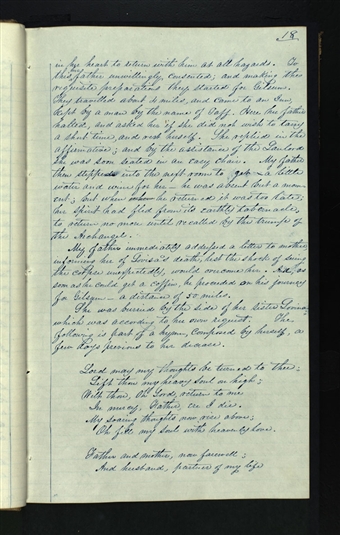 18
in my heart to return with him at all hazards. To
this father unwillingly consented; and making the
requisite preparations they started for Gilsum.
They travelled about 4 miles, and came to an Inn,
kept by a man by the name of Taff. Here he father
halted, and asked her if she did not wish to tarry
a short time, and rest herself. She replied in the
affirmative; and by the assistance of the Landlord
she was soon seated in an easy chair. My father
then stepped into the next room to get a little
water and wine for her — he was absent but a mom-
ent; but when he returned it was too late;
her spirit had fled from its earthly tabernacle,
to return no more until recalled by the trump of
the Archangel.
My father immediately addressed a letter to mother
informing her of Lovisa's death, lest the shock of seeing
the corpse unexpectedly, would overcome her. And, as
soon as he could get a coffin, he proceeded on his journey
for Gilsum — a distance of 50 miles.
She was buried by the side of her sister Lovina,
which was according to her own request. The
following is part of a hymn, composed by herself, a
few days previous to her decease.
Lord may my thoughts be turned to thee;
Lift thou my heavy soul on high;
Wilt thou, Oh Lord, return to me
In mercy, Father, ere I die.
My soaring thoughts now rise above;
Oh fill my soul with heavenly love.
Father and mother, now farewell;
And husband, partner of my life